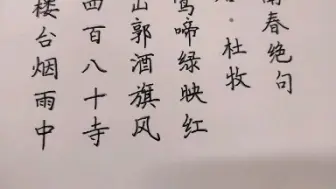 南春绝句
·杜牧
莺啼绿映红
山郭酒旗风
四百八十寺
楼台烟雨中